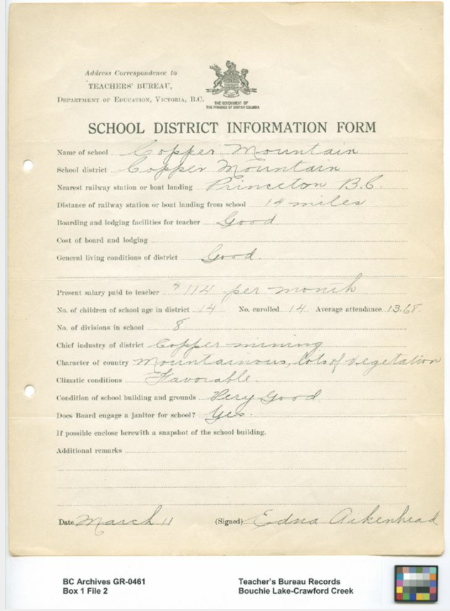 Address Correspondence to
TEACHERS' BUREAU,
DEPARTMENT OF EDUCATION, VICTORIA, B.C.
THE GOVERNMENT OF
THE PROVINCE OF BRITISH COLUMBIA
SCHOOL DISTRICT INFORMATION FORM
Name of school Copper Mountain
School district Copper Mountain
Nearest railway station or boat landing Princeton B.C.
Distance of railway station or boat landing from school 14 miles
Boarding and lodging facilities for teacher Good
Cost of board and lodging
General living conditions of district Good.
Present salary paid to teacher $114 per month
No. of children of school age in district 14 No. enrolled 14 Average attendance 13.68
No. of divisions in school 8
Chief industry of district Copper mining
Character of country Mountainous, lots of vegetation
Climatic conditions Favorable.
Condition of school building and grounds Very Good
Does Board engage a janitor for school? Yes.
If possible enclose herewith a snapshot of the school building.
Additional remarks
Date March 11 (Signed) Edna Aikenhead
BC Archives GR-0461 Teacher's Bureau Records
Box 1 File 2 Bouchie Lake-Crawford Creek